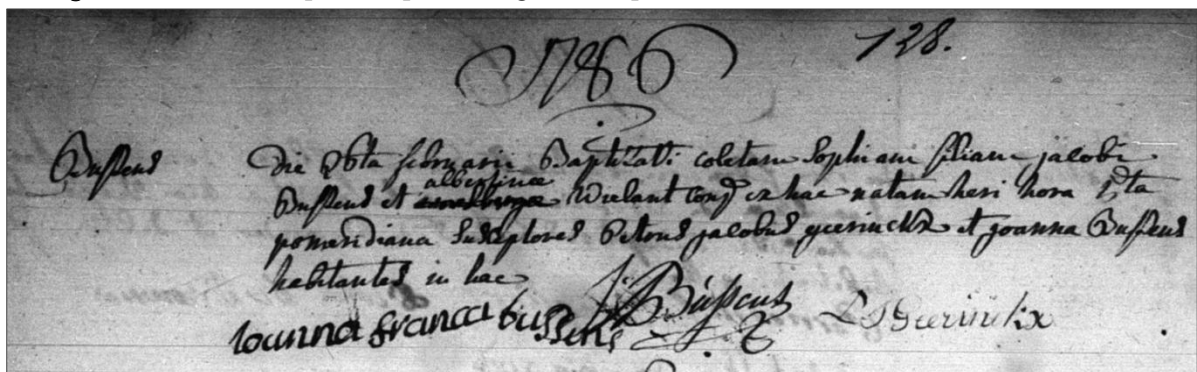 1786 128.
Bussens Die 26ta februarii Baptizavi coletam Sophiam filiam jacobi
albertinae
Bussens et Wielant conj ex hac natam heri hora 5ta
pomeridiana Susceptores Petrus jacobus geerinckx et joanna Bussens
habitantes in hac
Ioanna francca bussens J Bussens Geerinckx